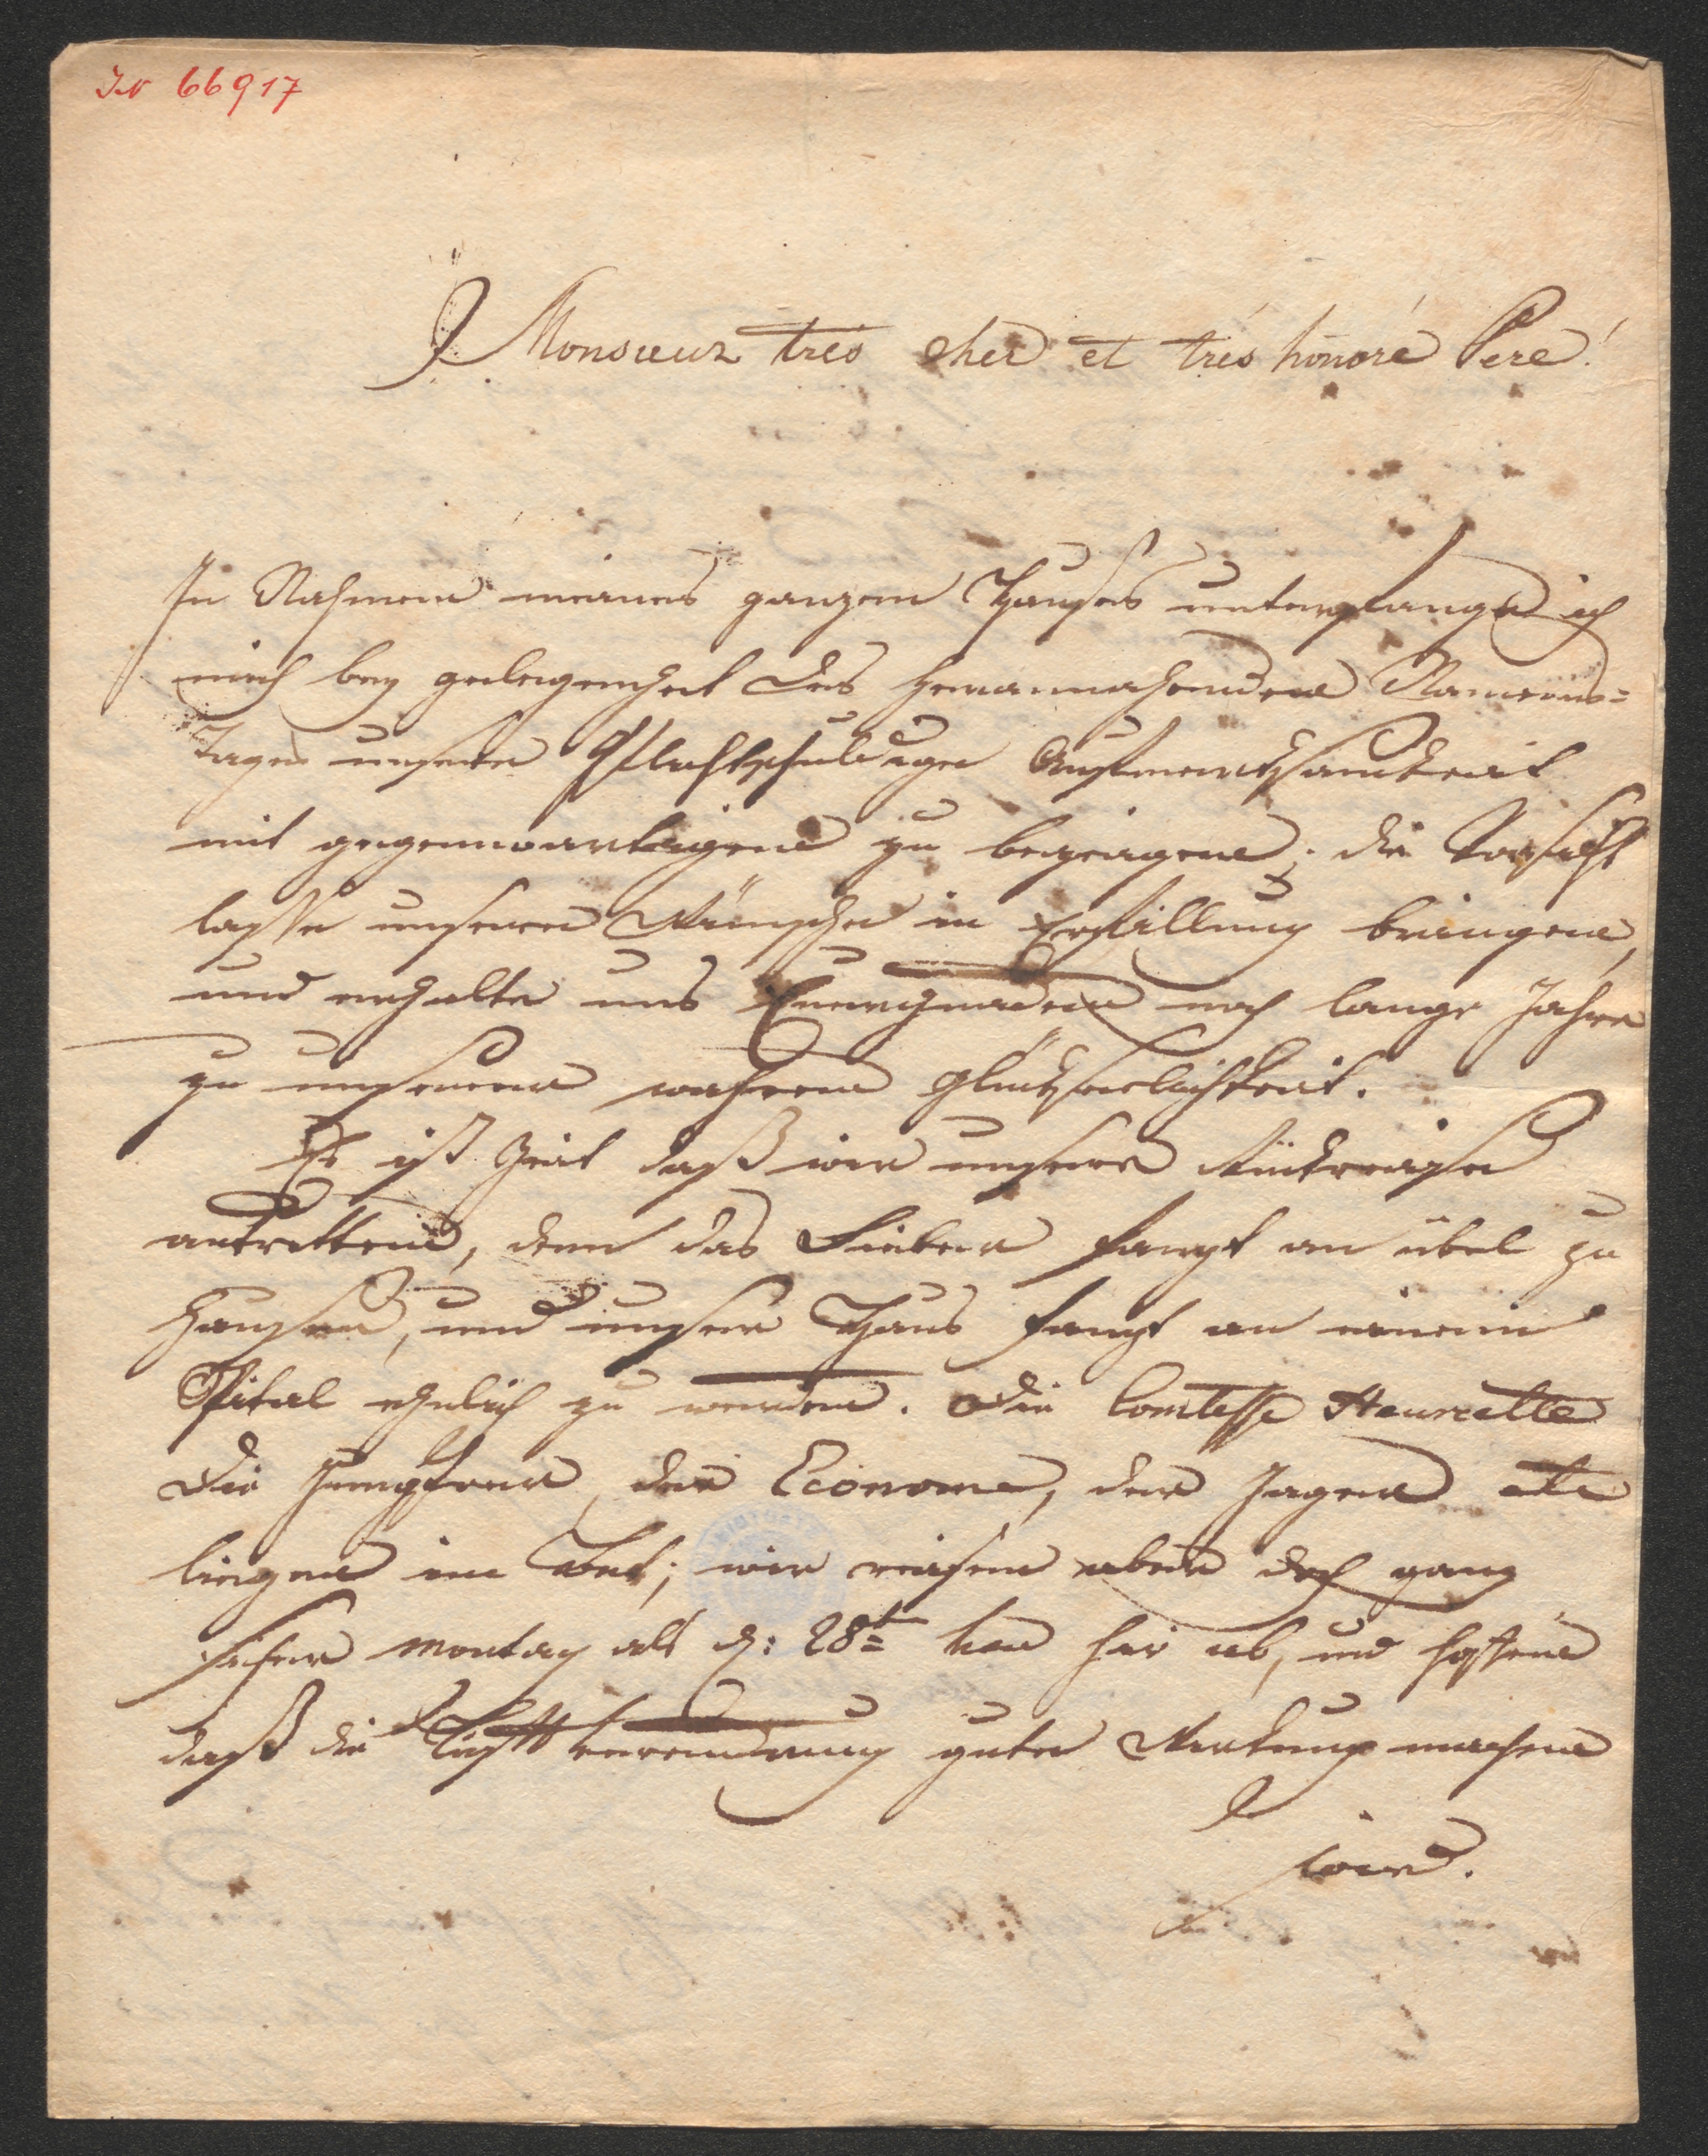 IN 66917
Monsieur très cher et très honoré Pere!
In Nahmen meines ganzen Hauses unterfange ich
mich bey gelegenheit des herannahenden Namens=
Tages unsere Pflichtschuldige Aufmerksamkeit
mit gegenwärtigen zu bezeigen; die Vorsicht
lasse unsere Wünsche in Erfüllung bringen,
und erhalte uns Euergnaden noch lange Jahre
zu unseren wahren Glückseelichkeit.
Es ist Zeit daß wir unsere Rückreise
antretten, denn das Fieber fangt an übel zu
hausen, und unser Haus fangt an einem
Spital ehnlich zu werden. Die Comtesse Henriette
die Jungfer, der Econome, der Jager etc
liegen im Bet; wir reisen aber doch ganz
sicher Montag als d: 28t von hier ab, und hoffen
daß die Luftveränderung gute Wirkung machen
wird.